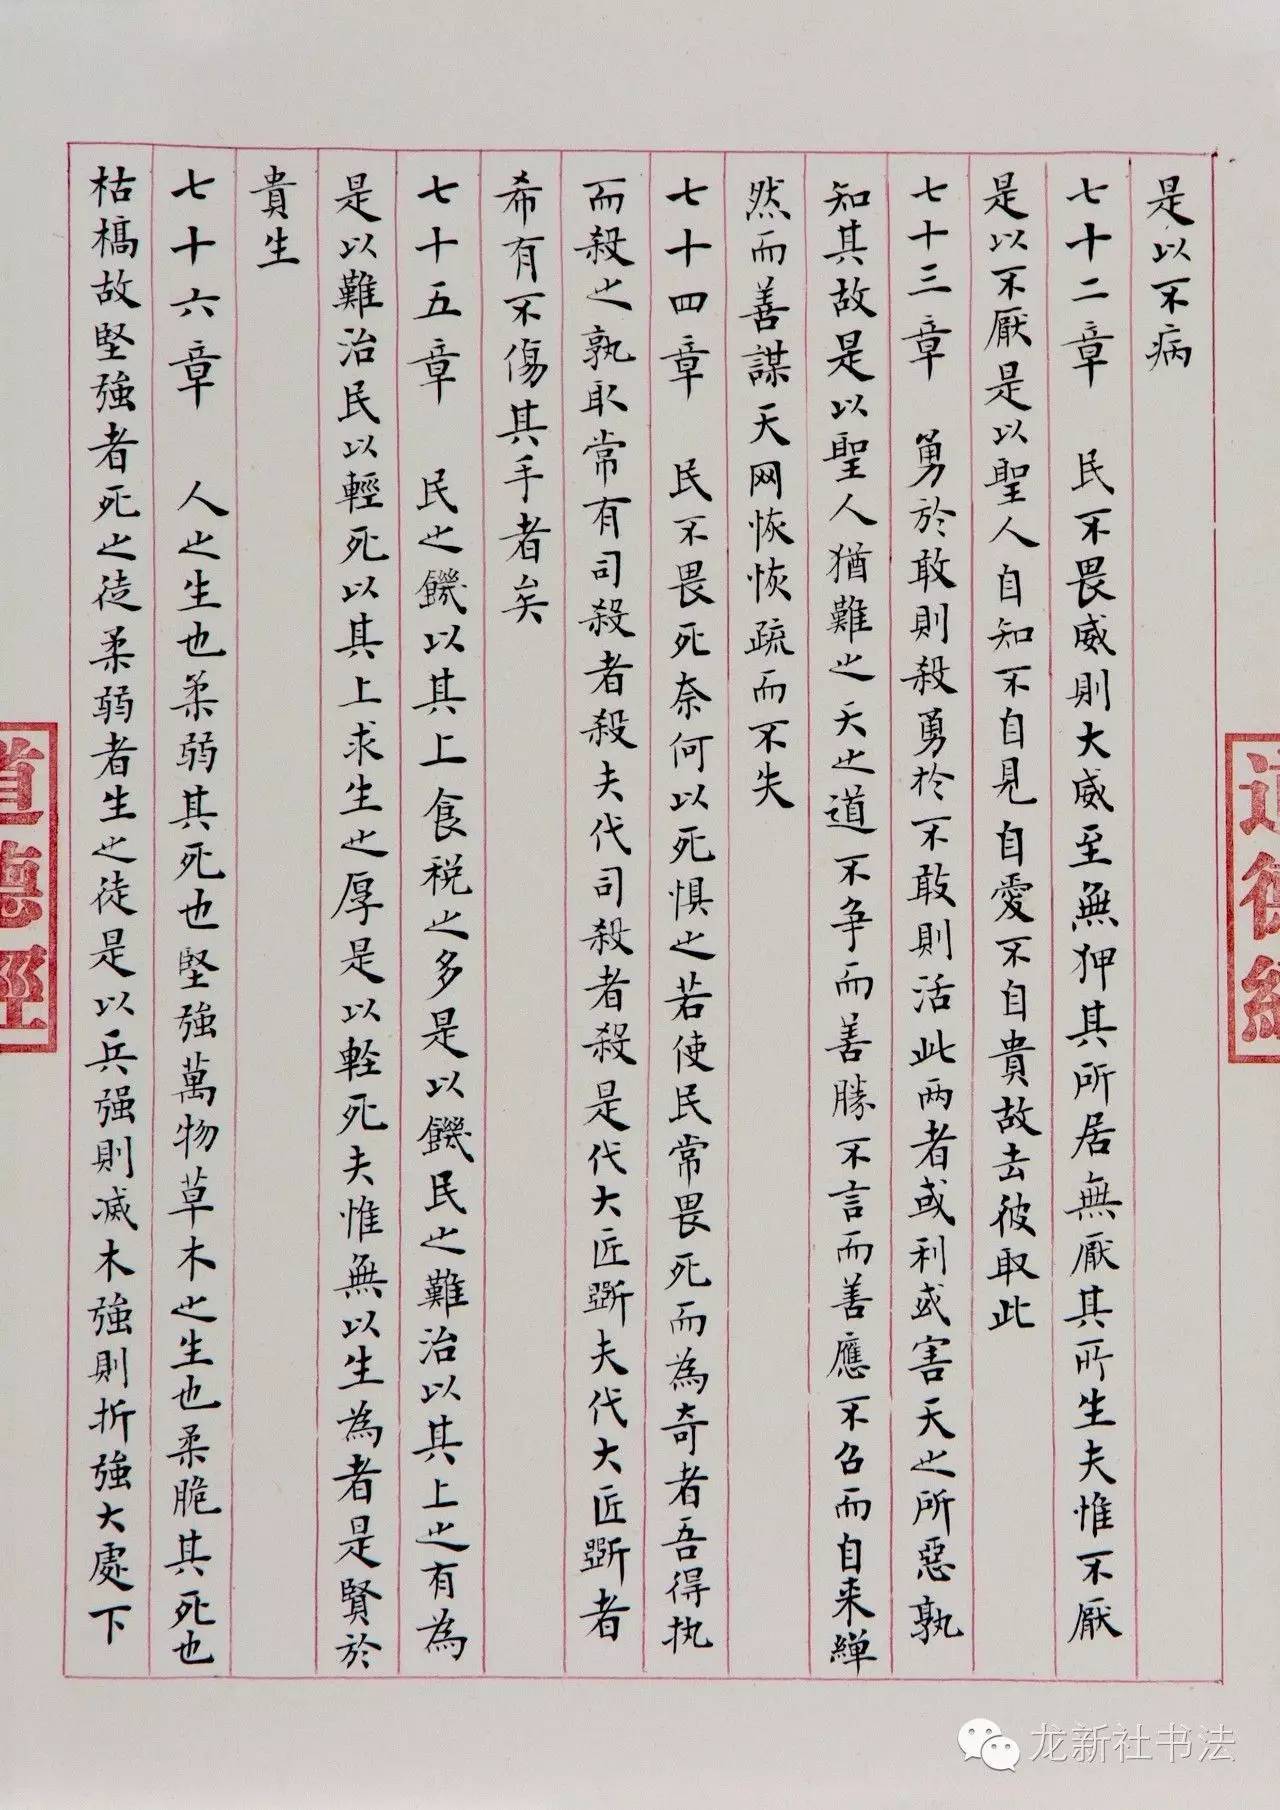 是以不病
七十二章　民不畏威則大威至無狎其所居無厭其所生夫惟不厭
是以不厭是以聖人自知不自見自愛不自貴故去彼取此
七十三章　勇於敢則殺勇於不敢則活此两者或利或害天之所惡孰
知其故是以聖人猶難之天之道不争而善勝不言而善應不召而自来繟
然而善謀天网恢恢疏而不失
七十四章　民不畏死奈何以死惧之若使民常畏死而為奇者吾得执
而殺之孰敢常有司殺者殺夫代司殺者殺是代大匠斲夫代大匠斲者
希有不傷其手者矣
七十五章　民之饑以其上食税之多是以饑民之難治以其上之有為
是以難治民以輕死以其上求生之厚是以軽死夫惟無以生為者是賢於
貴生
七十六章　人之生也柔弱其死也堅強萬物草木之生也柔脆其死也
枯槁故堅強者死之徒柔弱者生之徒是以兵强則滅木強則折強大處下
道德經
道德經
龙新社书法